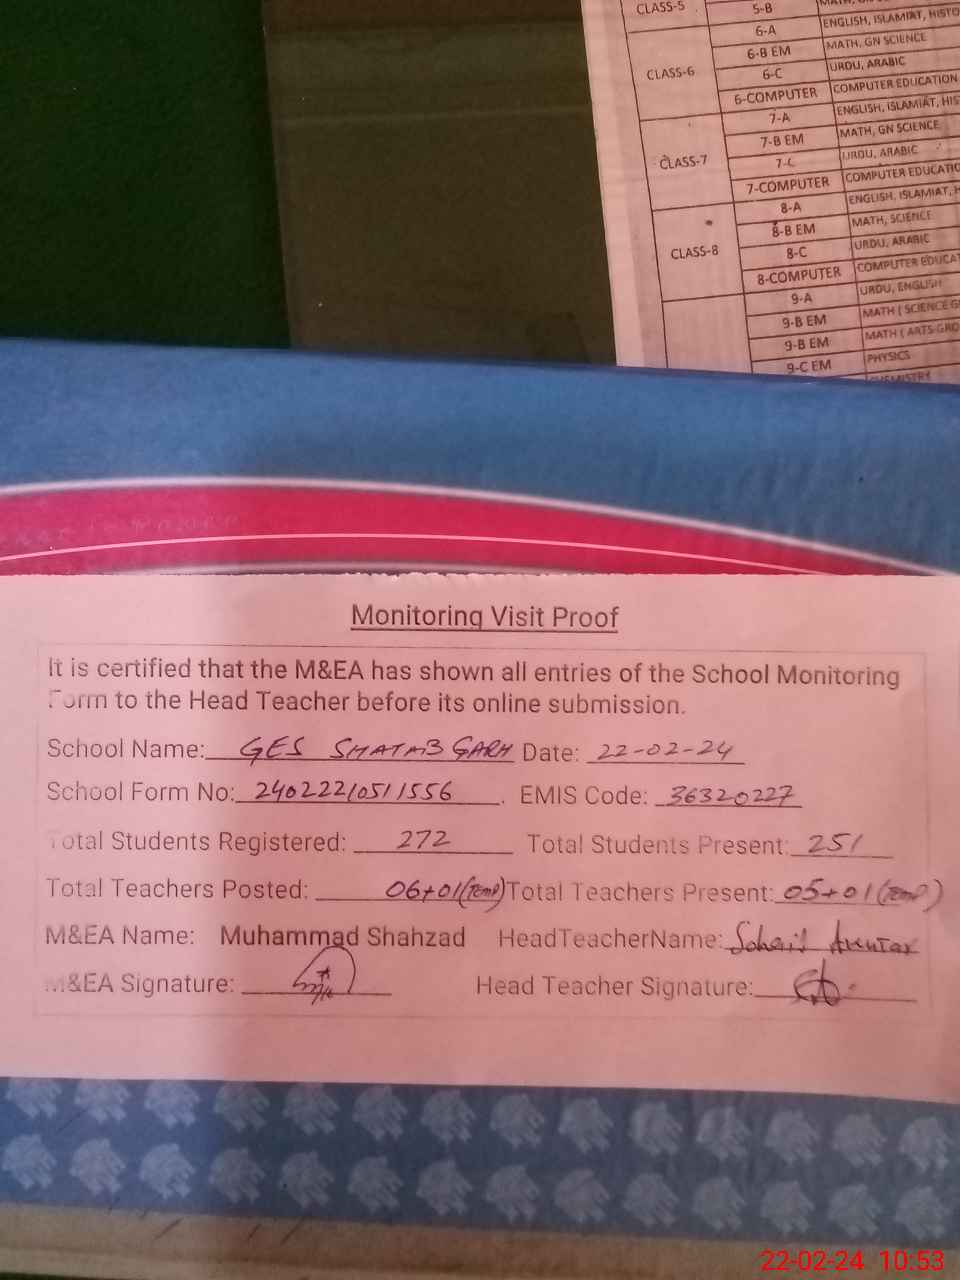 CLASS-5 5-B
6-A ENGLISH, ISLAMIAT,
CLASS-6 6-B EM MATH, GN SCIENCE
6-C URDU, ARABIC
6-COMPUTER COMPUTER EDUCATION
7-A ENGLISH, ISLAMIAT,
CLASS-7 7-B EM MATH, GN SCIENCE
7-C URDU, ARABIC
7-COMPUTER COMPUTER
8-A ENGLISH, ISLAMIAT,
CLASS-8 8-B EM MATH, SCIENCE
8-C URDU, ARABIC
8-COMPUTER COMPUTER
9-A URDU, ENGLISH
9-B EM MATH ( SCIENCE
9-B EM MATH ( ARTS
9-C EM PHYSICS
Monitoring Visit Proof
It is certified that the M&EA has shown all entries of the School Monitoring
Form to the Head Teacher before its online submission.
School Name: GES SHATAB GARH Date: 22-02-24
School Form No: 24022210511556. EMIS Code: 36320227
Total Students Registered: 272 Total Students Present: 251
Total Teachers Posted: 06+01(Temp) Total Teachers Present: 05+01(Temp)
M&EA Name: Muhammad Shahzad HeadTeacherName: Sohail
M&EA Signature: Head Teacher Signature:
22-02-24 10:53